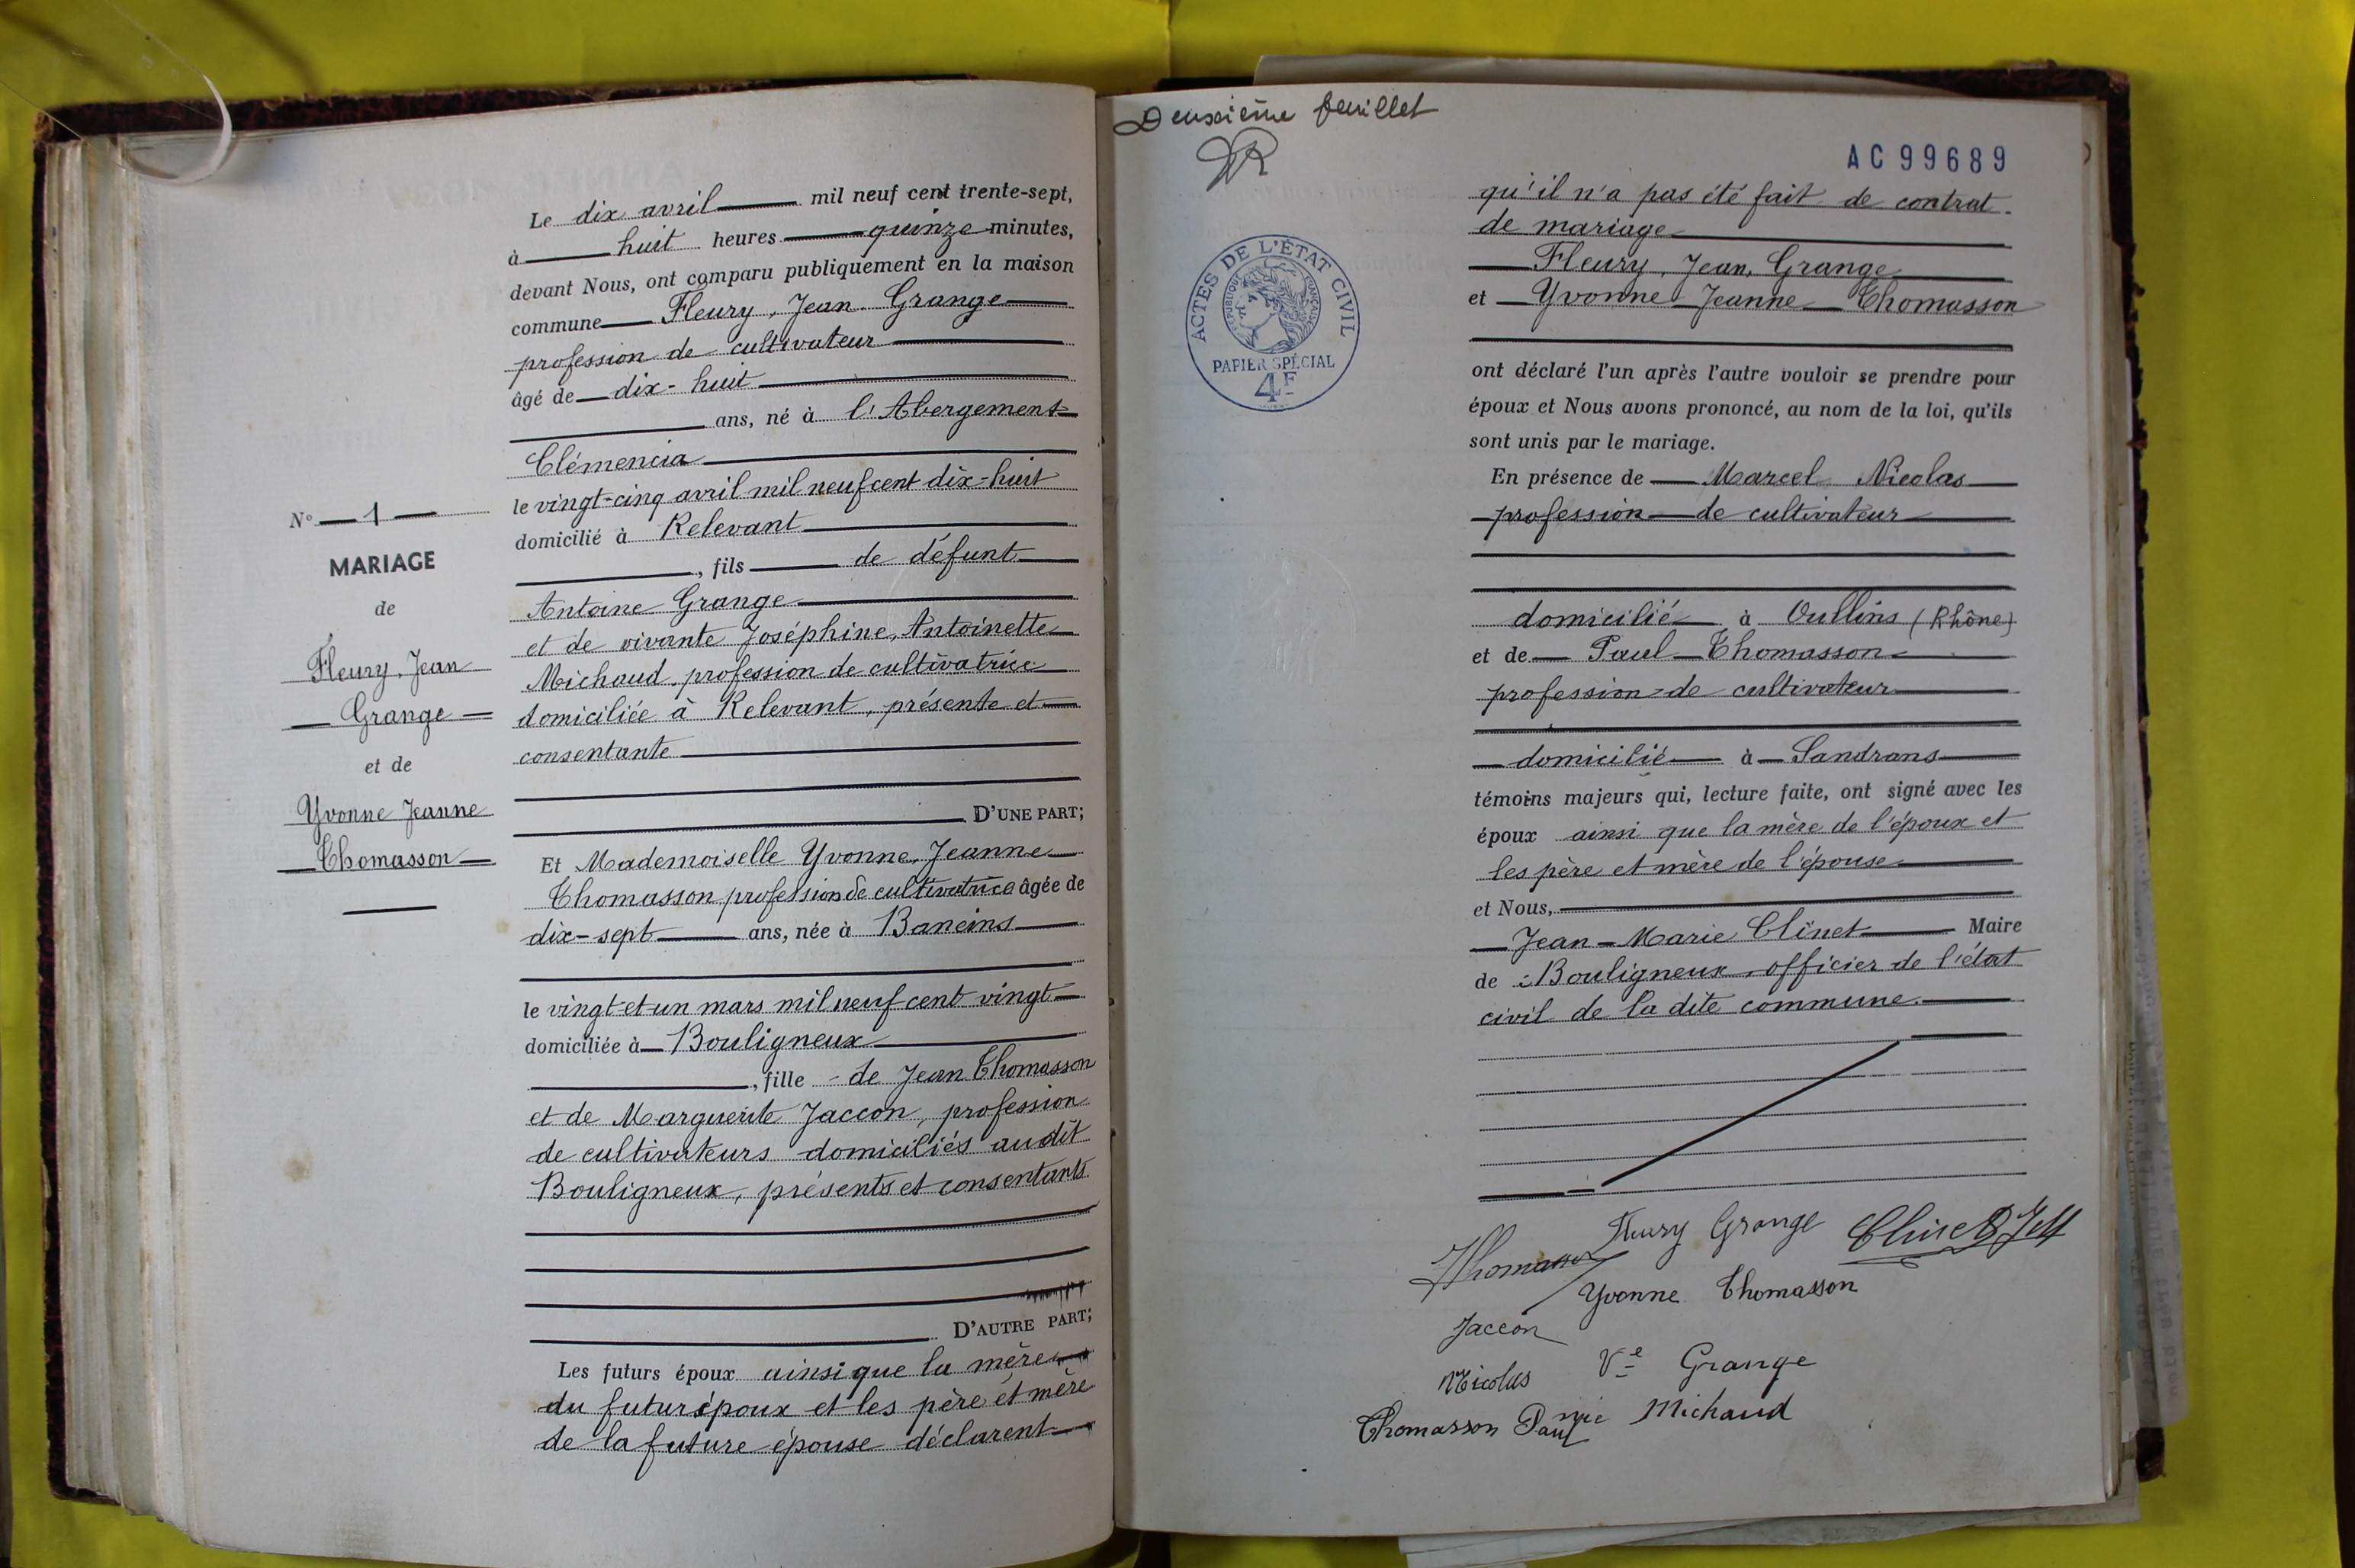 N° 1
MARIAGE
de
Fleury, Jean
Grange
et de
Yvonne Jeanne
Thomasson
Le dix avril mil neuf cent trente-sept,
à huit heures quinze minutes,
devant Nous, ont comparu publiquement en la maison
commune Fleury, Jean Grange
profession de cultivateur
âgé de dix-huit
ans, né à l'Abergement
Clémencia
le vingt-cinq avril mil neuf cent dix-huit
domicilié à Relevant
, fils de défunt
Antoine Grange
et de vivante Joséphine, Antoinette
Michaud, profession de cultivatrice
domiciliée à Relevant, présente et
consentante
D'UNE PART;
Et Mademoiselle Yvonne, Jeanne
Thomasson profession de cultivatrice âgée de
dix-sept ans, née à Baneins
le vingt-et-un mars mil neuf cent vingt
domiciliée à Bouligneux
, fille de Jean Thomasson
et de Marguerite Jaccon, profession
de cultivateurs domiciliés audit
Bouligneux, présents et consentants
D'AUTRE PART;
Les futurs époux ainsi que la mère
du futur époux et les père et mère
de la future épouse déclarent
Deuxième feuillet
AC 99689
ACTES DE L'ÉTAT CIVIL
RÉPUBLIQUE FRANÇAISE
PAPIER SPÉCIAL
4F
qu'il n'a pas été fait de contrat
de mariage
Fleury, Jean, Grange
et Yvonne Jeanne Thomasson
ont déclaré l'un après l'autre vouloir se prendre pour
époux et Nous avons prononcé, au nom de la loi, qu'ils
sont unis par le mariage.
En présence de Marcel Nicolas
profession de cultivateur
domicilié à Oullins (Rhône)
et de Paul Thomasson
profession de cultivateur
domicilié à Sandrans
témoins majeurs qui, lecture faite, ont signé avec les
époux ainsi que la mère de l'époux et
les père et mère de l'épouse
et Nous,
Jean-Marie Clinet Maire
de Bouligneux, officier de l'état
civil de la dite commune.
Fleury Grange
Thomasson
Yvonne Thomasson
Jaccon
Nicolas Ve Grange
née Michaud
Thomasson Paul